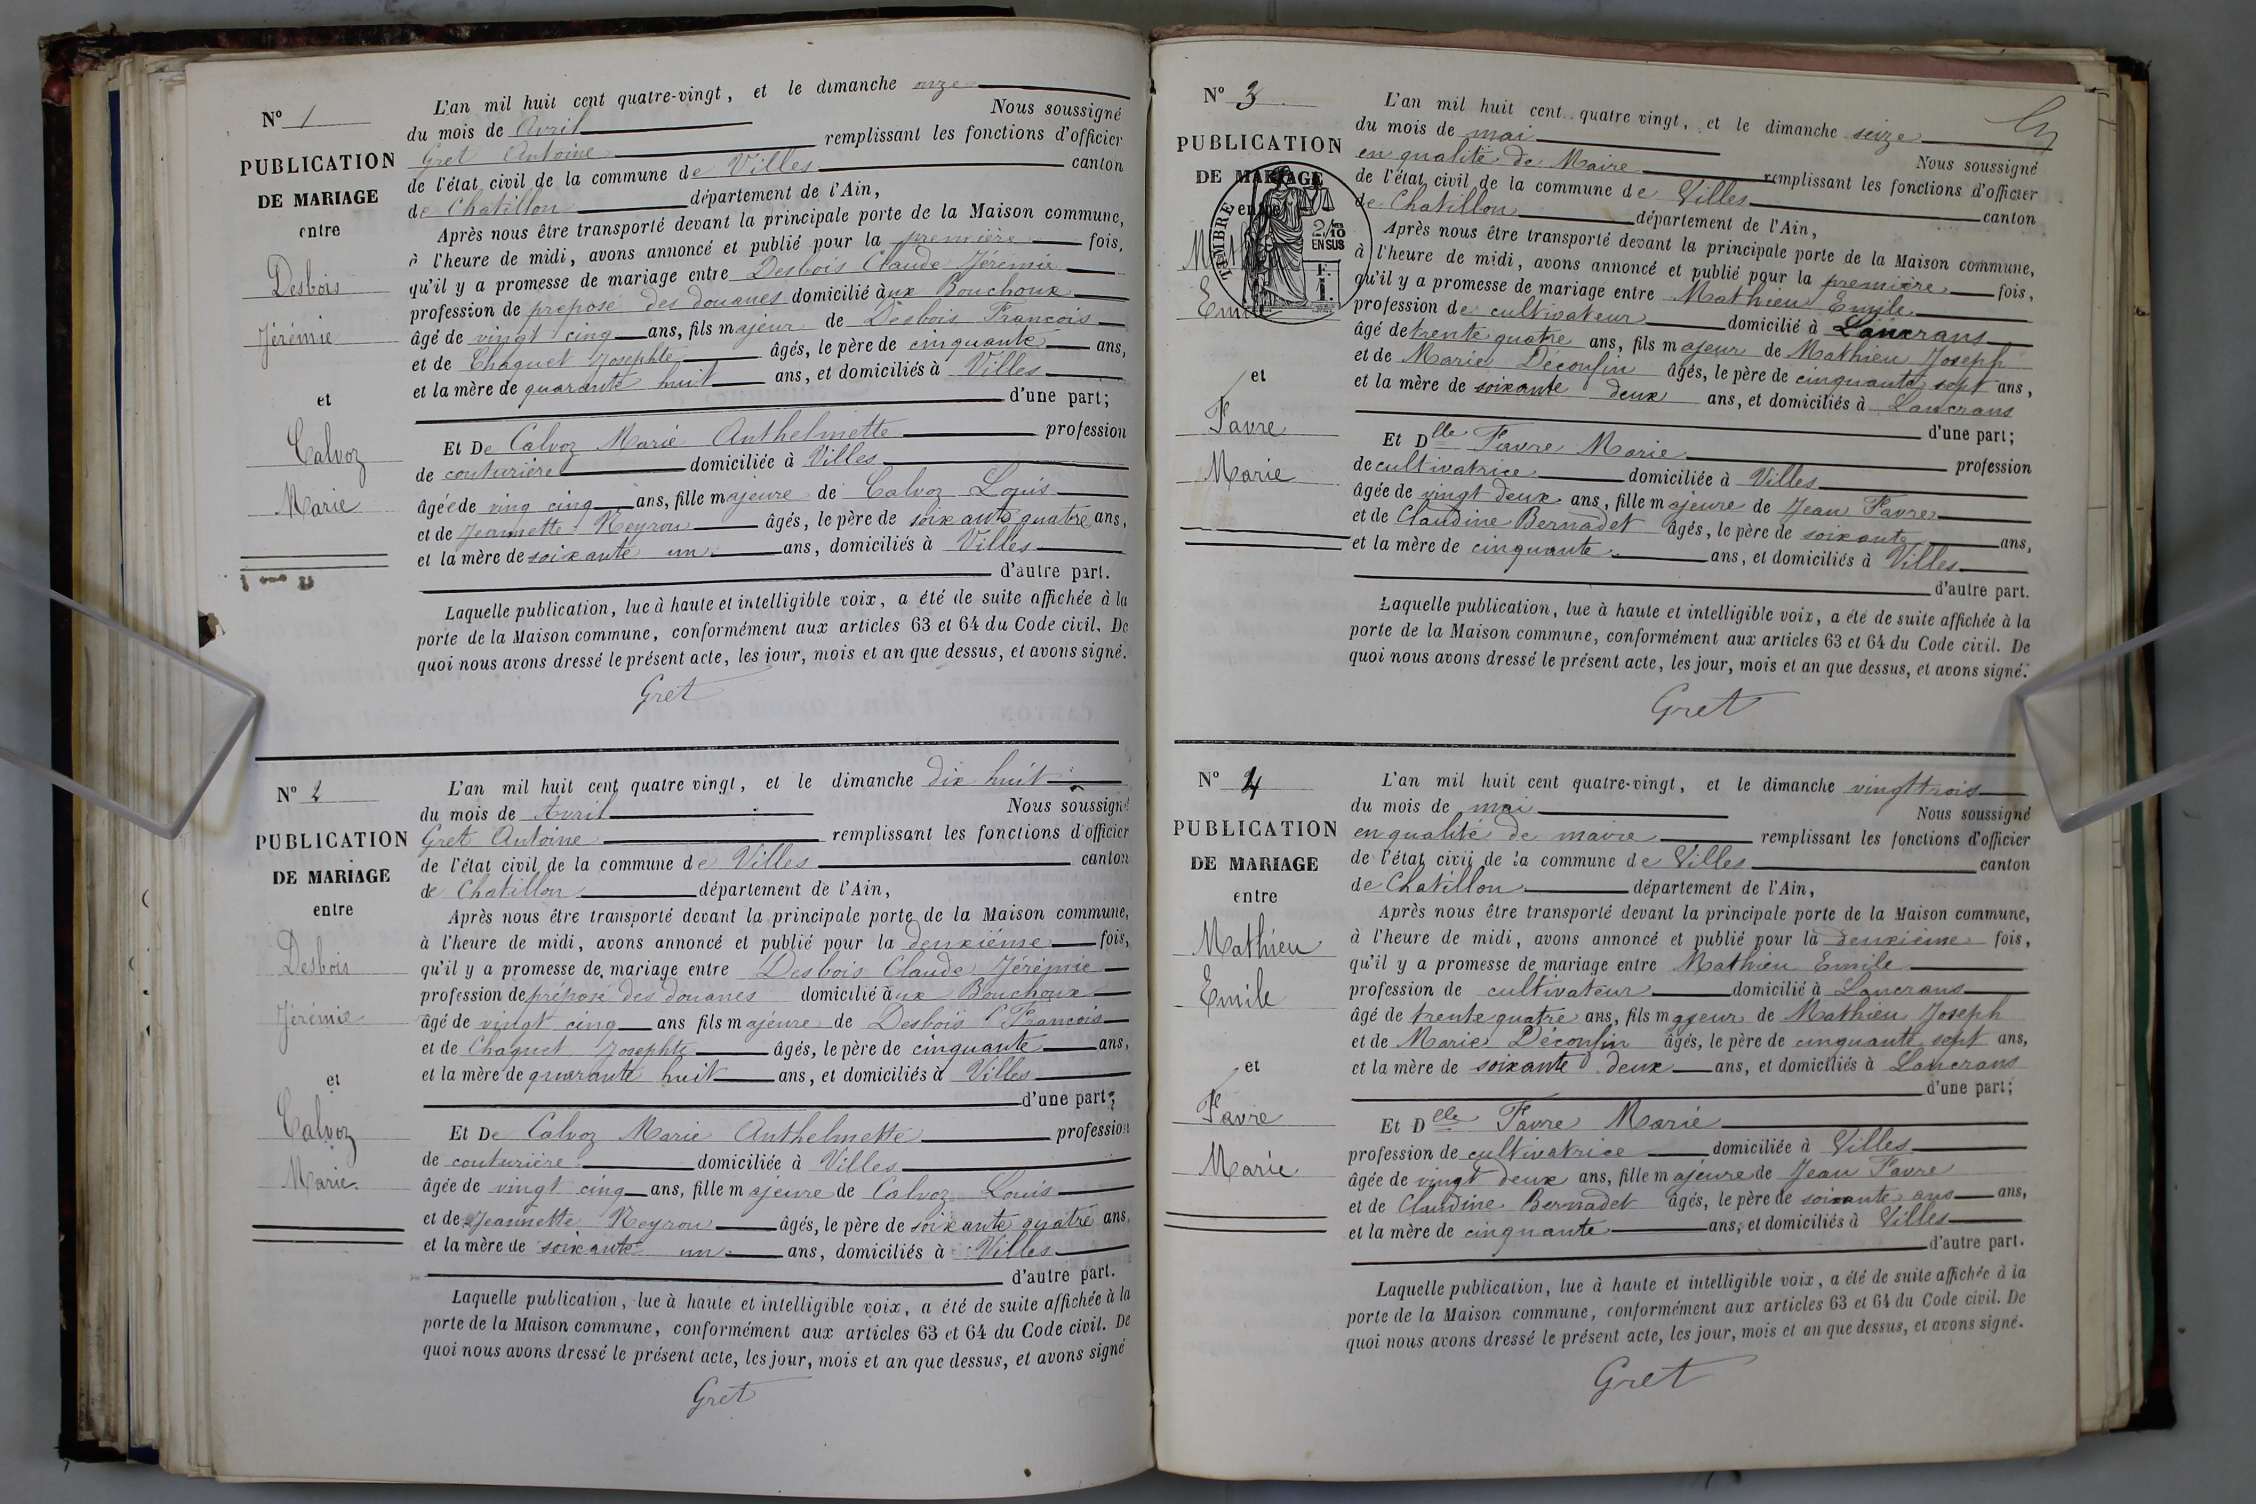 N° 1
PUBLICATION
DE MARIAGE
entre
Desbois
Jérémie
et
Calvoz
Marie
L'an mil huit cent quatre-vingt, et le dimanche onze
du mois de Avril Nous soussigné
Gret Antoine remplissant les fonctions d'officier
de l'état civil de la commune de Villes canton
de Chatillon département de l'Ain,
Après nous être transporté devant la principale porte de la Maison commune,
à l'heure de midi, avons annoncé et publié pour la première fois,
qu'il y a promesse de mariage entre Desbois Claude Jérémie
profession de préposé des douanes domicilié aux Bouchoux
âgé de vingt cinq ans, fils majeur de Desbois François
et de Chaquet Josephte âgés, le père de cinquante ans,
et la mère de quarante huit ans, et domiciliés à Villes
d'une part;
Et De Calvoz Marie Anthelmette profession
de couturière domiciliée à Villes
âgée de ving cinq ans, fille majeure de Calvoz Louis
et de Jeannette Neyrou âgés, le père de soixante quatre ans,
et la mère de soixante un ans, domiciliés à Villes
d'autre part.
Laquelle publication, lue à haute et intelligible voix, a été de suite affichée à la
porte de la Maison commune, conformément aux articles 63 et 64 du Code civil. De
quoi nous avons dressé le présent acte, les jour, mois et an que dessus, et avons signé.
Gret
N° 2
PUBLICATION
DE MARIAGE
entre
Desbois
Jérémie
et
Calvoz
Marie.
L'an mil huit cent quatre vingt, et le dimanche dix huit
du mois de Avril Nous soussigné
Gret Antoine remplissant les fonctions d'officier
de l'état civil de la commune de Villes canton
de Chatillon département de l'Ain,
Après nous être transporté devant la principale porte de la Maison commune,
à l'heure de midi, avons annoncé et publié pour la deuxième fois,
qu'il y a promesse de mariage entre Desbois Claude Jérémie
profession de préposé des douanes domicilié aux Bouchoux
âgé de vingt cinq ans fils majeure de Desbois François
et de Chaquet Josephte âgés, le père de cinquante ans,
et la mère de quarante huit ans, et domiciliés à Villes
d'une part;
Et De Calvoz Marie Anthelmette profession
de couturière domiciliée à Villes
âgée de vingt cinq ans, fille majeure de Calvoz Louis
et de Jeannette Neyrou âgés, le père de soixante quatre ans
et la mère de soixante un ans, domiciliés à Villes
d'autre part.
Laquelle publication, lue à haute et intelligible voix, a été de suite affichée à la
porte de la Maison commune, conformément aux articles 63 et 64 du Code civil. De
quoi nous avons dressé le présent acte, les jour, mois et an que dessus, et avons signé
Gret
N° 3
PUBLICATION
DE MARIAGE
entre
TIMBRE
2/10
EN SUS
Emile
et
Favre
Marie
L'an mil huit cent quatre vingt, et le dimanche seize
du mois de mai Nous soussigné
en qualité de Maire remplissant les fonctions d'officier
de l'état civil de la commune de Villes canton
de Chatillon département de l'Ain,
Après nous être transporté devant la principale porte de la Maison commune,
à l'heure de midi, avons annoncé et publié pour la première fois,
qu'il y a promesse de mariage entre Mathieu Emile
profession de cultivateur domicilié à Lancrans
âgé de trente quatre ans, fils majeur de Mathieu Joseph
et de Marie Découfin âgés, le père de cinquante sept ans,
et la mère de soixante deux ans, et domiciliés à Lancrans
d'une part;
Et Dlle Favre Marie profession
de cultivatrice domiciliée à Villes
âgée de vingt deux ans, fille majeure de Jean Favre
et de Claudine Bernadet âgés, le père de soixante ans,
et la mère de cinquante ans, et domiciliés à Villes
d'autre part.
Laquelle publication, lue à haute et intelligible voix, a été de suite affichée à la
porte de la Maison commune, conformément aux articles 63 et 64 du Code civil. De
quoi nous avons dressé le présent acte, les jour, mois et an que dessus, et avons signé.
Gret
N° 4
PUBLICATION
DE MARIAGE
entre
Mathieu
Emile
et
Favre
Marie
L'an mil huit cent quatre-vingt, et le dimanche vingt trois
du mois de mai Nous soussigné
en qualité de maire remplissant les fonctions d'officier
de l'état civil de la commune de Villes canton
de Chatillon département de l'Ain,
Après nous être transporté devant la principale porte de la Maison commune,
à l'heure de midi, avons annoncé et publié pour la deuxième fois,
qu'il y a promesse de mariage entre Mathieu Emile
profession de cultivateur domicilié à Lancrans
âgé de trente quatre ans, fils majeur de Mathieu Joseph
et de Marie Découfin âgés, le père de cinquante sept ans,
et la mère de soixante deux ans, et domiciliés à Lancrans
d'une part;
Et Dlle Favre Marie
profession de cultivatrice domiciliée à Villes
âgée de vingt deux ans, fille majeure de Jean Favre
et de Claudine Bernadet âgés, le père de soixante ans ans,
et la mère de cinquante ans, et domiciliés à Villes
d'autre part.
Laquelle publication, lue à haute et intelligible voix, a été de suite affichée à la
porte de la Maison commune, conformément aux articles 63 et 64 du Code civil. De
quoi nous avons dressé le présent acte, les jour, mois et an que dessus, et avons signé.
Gret